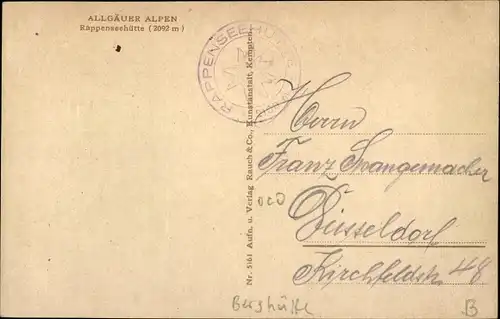 ALLGÄUER ALPEN
Rappenseehütte (2092 m)
RAPPENSEEHÜTTE
Nr. 5161 Aufn. u. Verlag Rauch & Co., Kunstanstalt, Kempten.
Herrn
Franz Spangemacher
Düsseldorf
Kirchfeldstr. 48
Berghütte
B